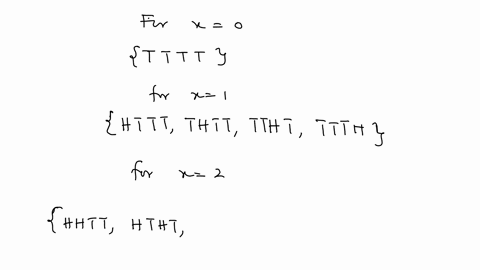 For x = 0
{ T T T T }
for x = 1
{ H T T T, T H T T, T T H T, T T T H }
for x = 2
{ H H T T, H T H T,